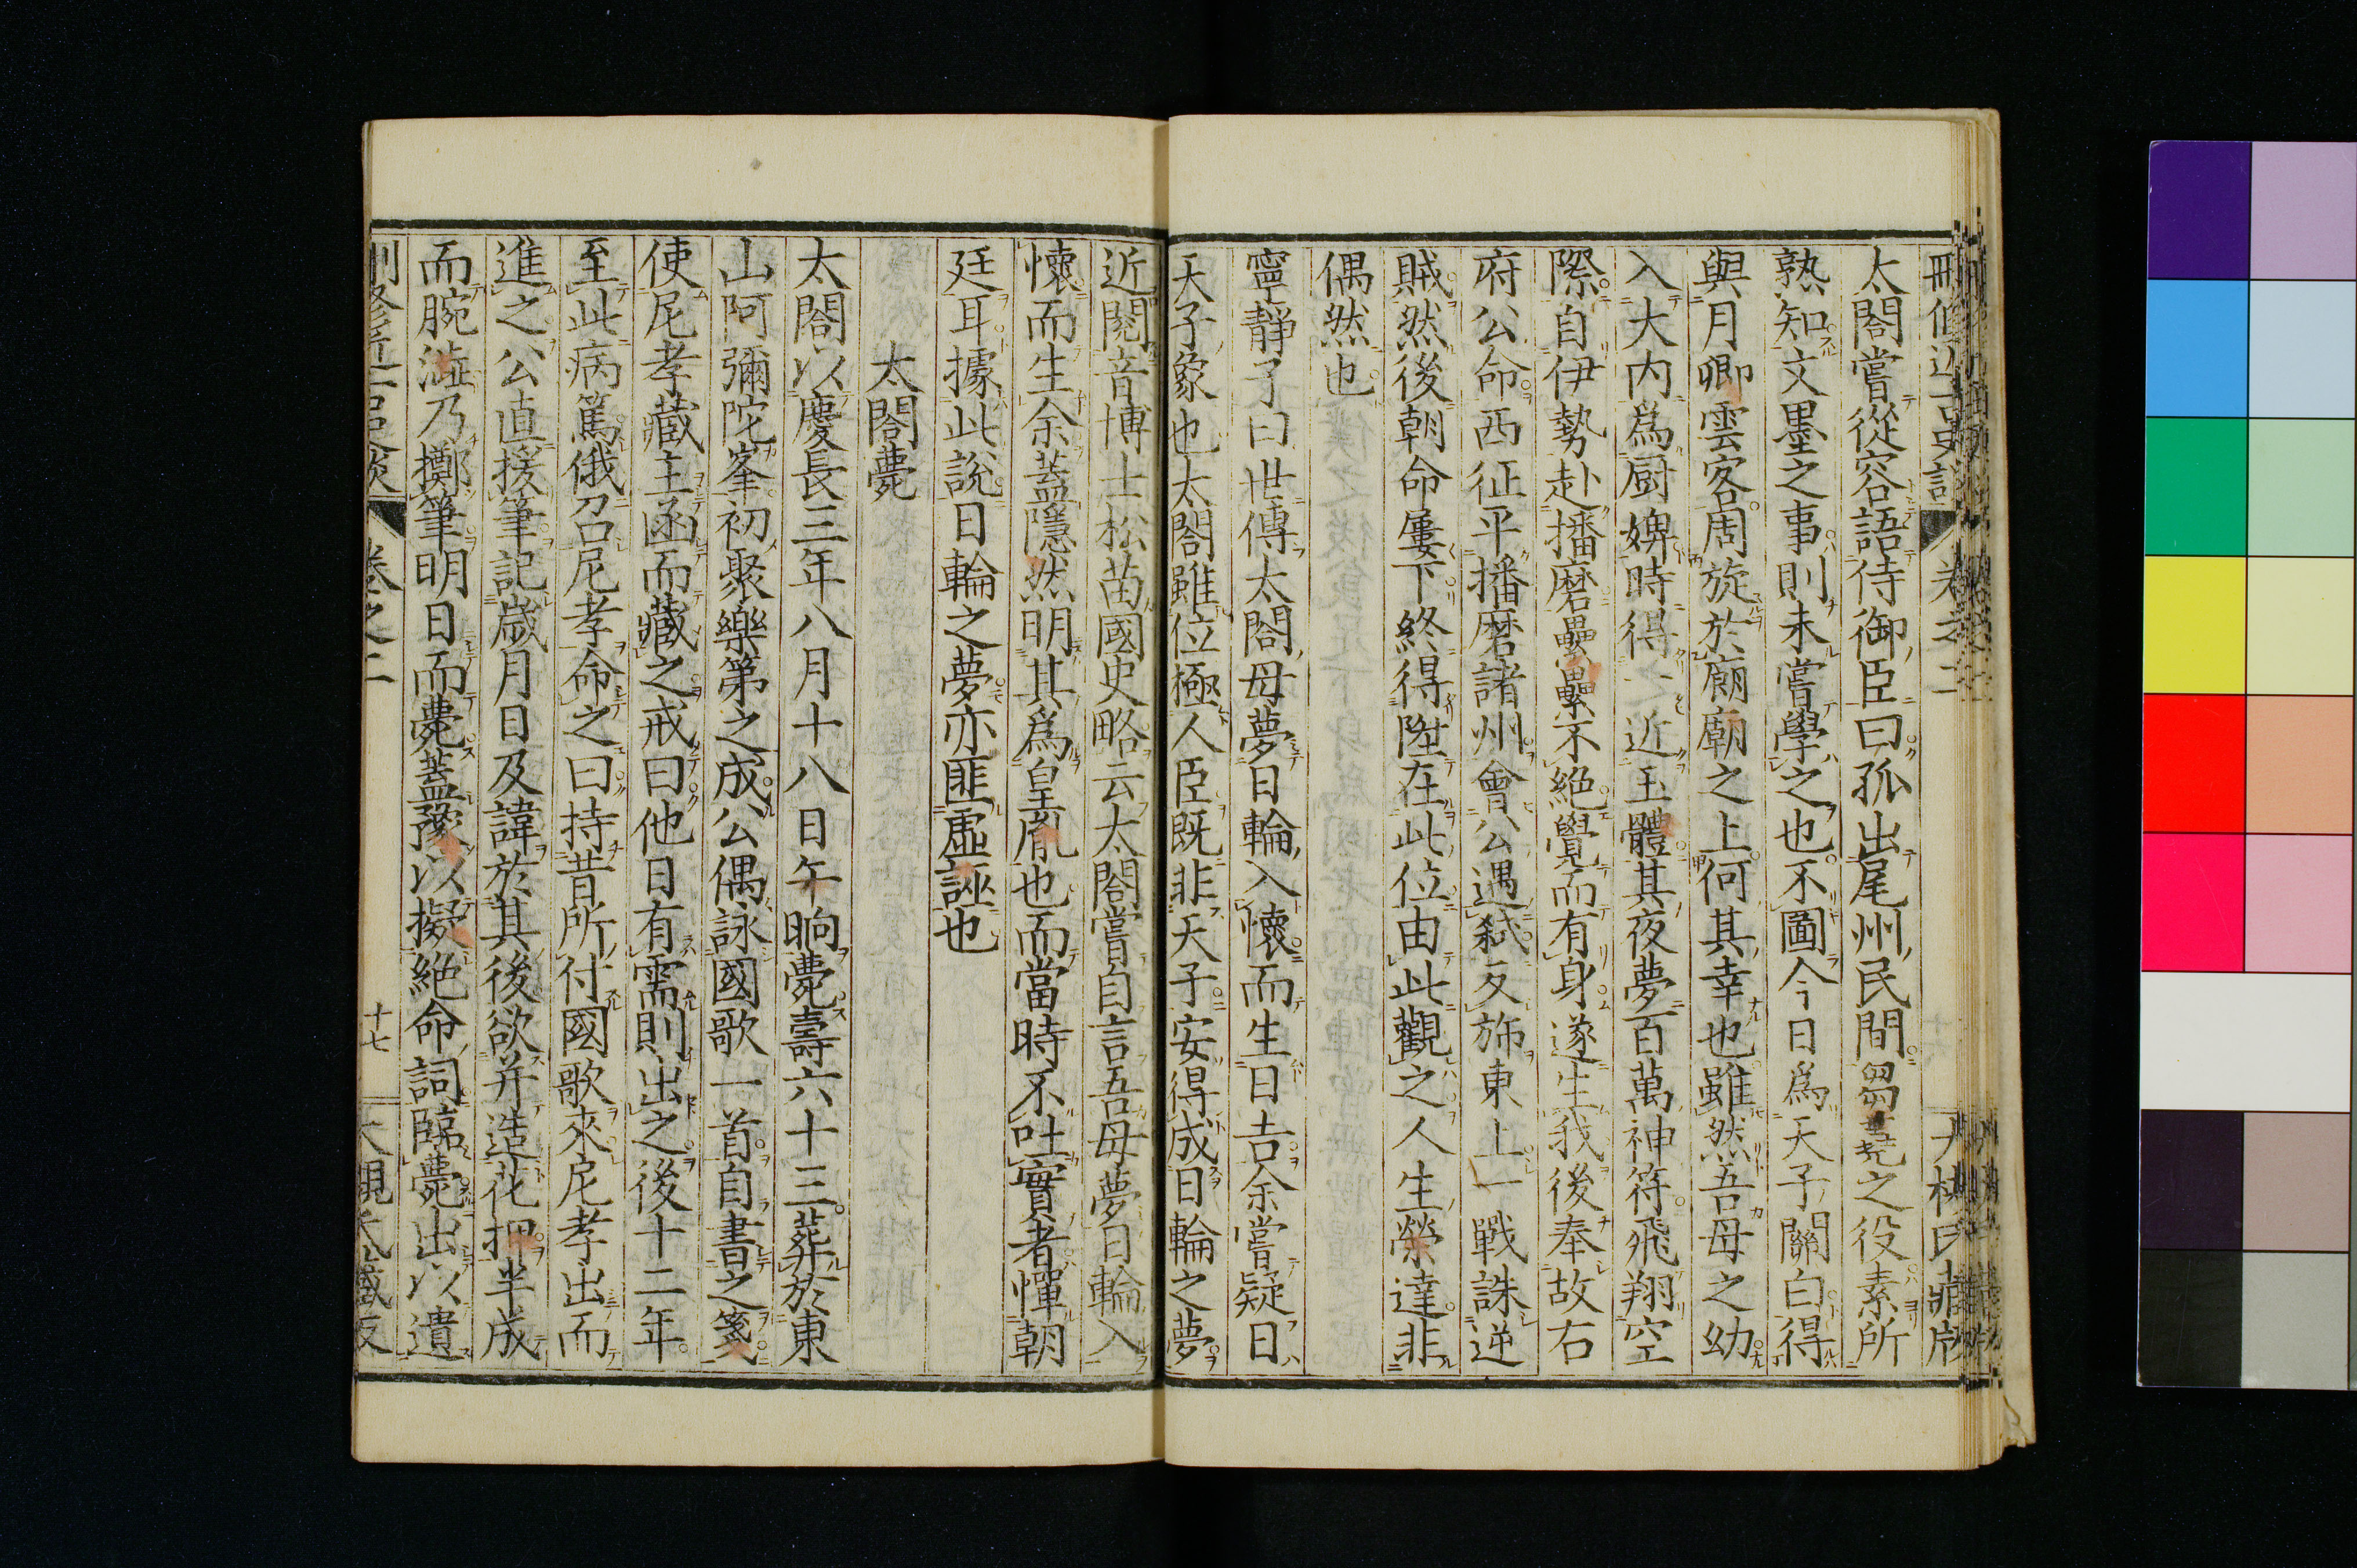 太閤嘗從容語侍御臣曰孤出尾州民間芻蕘之役素所
熟知文墨之事則未嘗學之也不圖今日爲天子關白得
與月卿雲客周旋於廊廟之上何其幸也雖然吾母之幼
入大内爲厨婢時得一近玉體其夜夢百萬神符飛翔空
際自伊勢赴播磨纍纍不絕覺而有身遂生我後奉故右
府公命西征平播磨諸州會公遇弑反旆東上一戰誅逆
賊然後朝命屢下終得陞在此位由此觀之人生榮達非
偶然也
寧靜子曰世傳太閤母夢日輪入懷而生日吉余嘗疑日
天子象也太閤雖位極人臣既非天子安得成日輪之夢
近閱音博士松苗國史略云太閤嘗自言吾母夢日輪入
懷而生余蓋隱然明其爲皇胤也而當時不吐實者憚朝
廷耳據此說日輪之夢亦匪虛誣也
太閤薨
太閤以慶長三年八月十八日午晌薨壽六十三葬於東
山阿彌陀峯初聚樂第之成公偶詠國歌一首自書之箋
使尼孝藏主函而藏之戒曰他日有需則出之後十二年
至此病篤俄召尼孝命之曰持昔所付國歌來尼孝出而
進之公直援筆記歲月日及諱於其後欲并造花押半成
而腕澁乃擲筆明日而薨蓋豫以擬絕命詞臨薨出以遺
卷之二
十七